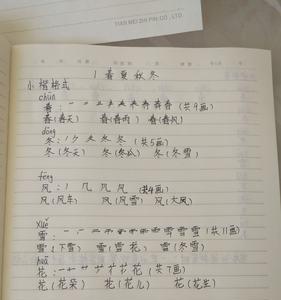 TIAN MEI ZHI PIN CO., LTD.
1 春夏秋冬
小楷格式
chūn
春: 一 二 三 声 夫 表 春 春 春 (共9画)
春(春天) 春(春雨) 春(春风)
dōng
冬: 丿 ク 夂 冬 冬 (共5画)
冬(冬天) 冬(冬瓜) 冬(冬雪)
fēng
风: 丿 几 凡 风 (共4画)
风(风车) 风(风雪) 风(大风)
xuě
雪: 雪 雪 雪 (共11画)
雪(下雪) 雪(雪花) 雪(冬雪)
huā
花: 一 十 艹 花 (共7画)
花(花朵) 花(花儿) 花(花生)